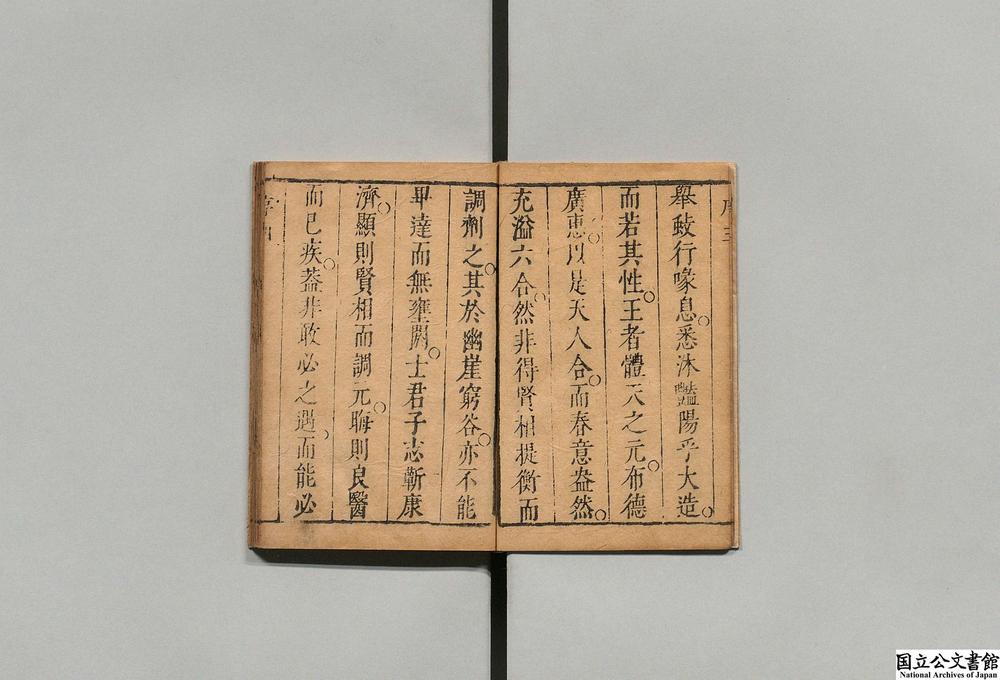 序三
舉蚑行喙息悉沐豔陽乎大造
而若其性王者體天之元布德
廣惠以是天人合而春意盎然
充溢六合然非得賢相提衡而
調劑之其於幽崖窮谷亦不能
畢達而無壅閼士君子志蘄康
濟顯則賢相而調元晦則良醫
而已疾葢非敢必之遇而能必
序四
国立公文書館
National Archives of Japan